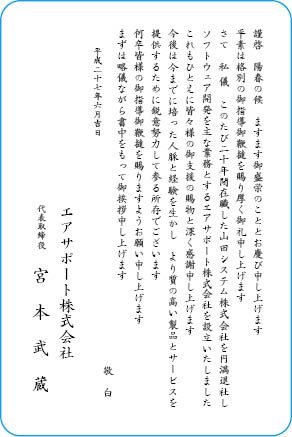 謹啓　陽春の候　ますます御盛栄のこととお慶び申し上げます
平素は格別の御指導御鞭撻を賜り厚く御礼申し上げます
さて　私儀　このたび二十年間在職した山田システム株式会社を円満退社し
ソフトウェア開発を主な業務とするエアサポート株式会社を設立いたしました
これもひとえに皆々様の御支援の賜物と深く感謝申し上げます
今後は今までに培った人脈と経験を生かし　より質の高い製品とサービスを
提供するために鋭意努力して参る所存でございます
何卒皆様の御指導御鞭撻を賜りますようお願い申し上げます
まずは略儀ながら書中をもって御挨拶申し上げます
敬　白
平成二十七年六月吉日
エアサポート株式会社
代表取締役　宮本武蔵